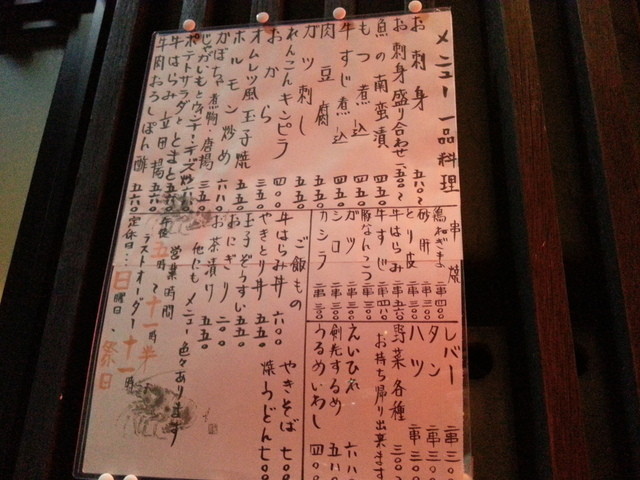 メニュー 一品料理
お刺身 五八〇〜
お刺身盛り合わせ 一、五〇〇〜
魚の南蛮漬 四五〇
もつ煮込 四五〇
牛すじ煮込 四五〇
肉豆腐 五五〇
ガツ刺し 五五〇
れんこんキンピラ 四〇〇
おから 三五〇
オムレツ風玉子焼 五五〇
ホルモン炒め 六八〇
かぼちゃ煮物・唐揚 三五〇
じゃがいもとウィンナーチーズ炒
ポテトサラダとトマト 五五〇
牛はらみ立田揚
牛肉おろしぽん酢 五六〇
串焼
鶏ねぎま 一串 三〇〇
砂肝 一串 三〇〇
とり皮 一串 三〇〇
牛はらみ 一串 五六〇
牛すじ 一串 四八〇
豚なんこつ 一串 三〇〇
ガツ 一串 三〇〇
シロ 一串 三〇〇
カシラ 一串 三〇〇
レバー 一串 三〇〇
タン 一串 三〇〇
ハツ 一串 三〇〇
野菜各種 三〇〇
お持ち帰り出来ます
えいひれ 六八〇
剣先するめ 五八〇
うるめいわし 四〇〇
ご飯もの
牛はらみ丼 六〇〇
やきとり丼 五五〇
玉子ぞうすい 五五〇
おにぎり 二〇〇
お茶漬け 五五〇
やきそば 七〇〇
焼うどん 七〇〇
他にもメニュー色々あります
営業時間
午後五時〜十一時半
ラストオーダー十一時
定休日…日曜日、祭日